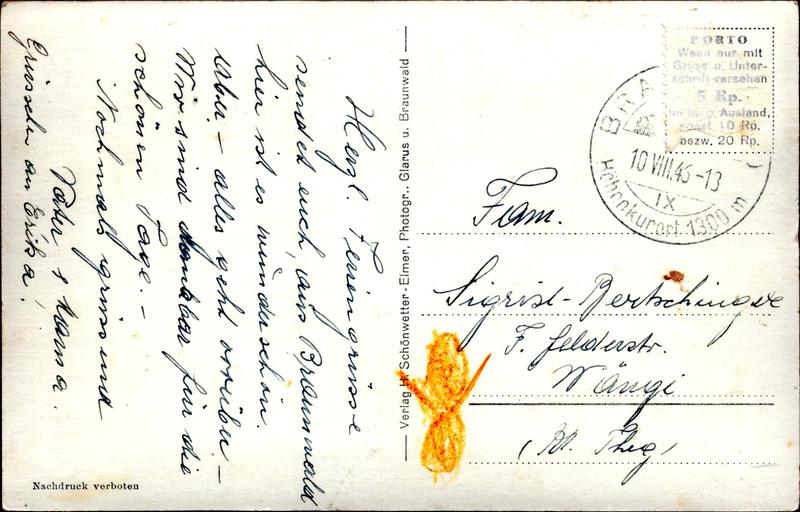 Herzl. Feriengrüsse
sendet euch, aus Braunwald
hier ist es wunderschön.
Aber - alles geht vorüber -
Wir sind dankbar für die
schönen Tage. -
Nochmals grüssend
Vater & Mama.
Grüsseln an Erika!
Nachdruck verboten
Verlag H. Schönwetter-Elmer, Photogr., Glarus u. Braunwald
PORTO
Wenn nur mit
Gruss u. Unter-
schrift versehen
5 Rp.
Ausland,
sonst 10 Rp.
bezw. 20 Rp.
BRA
10 VIII.46-13
IX
Höhenkurort 1300 m
Fam.
Sigrist-Bertschinger
F. felderstr.
Wängi
(Kt. Thrg)